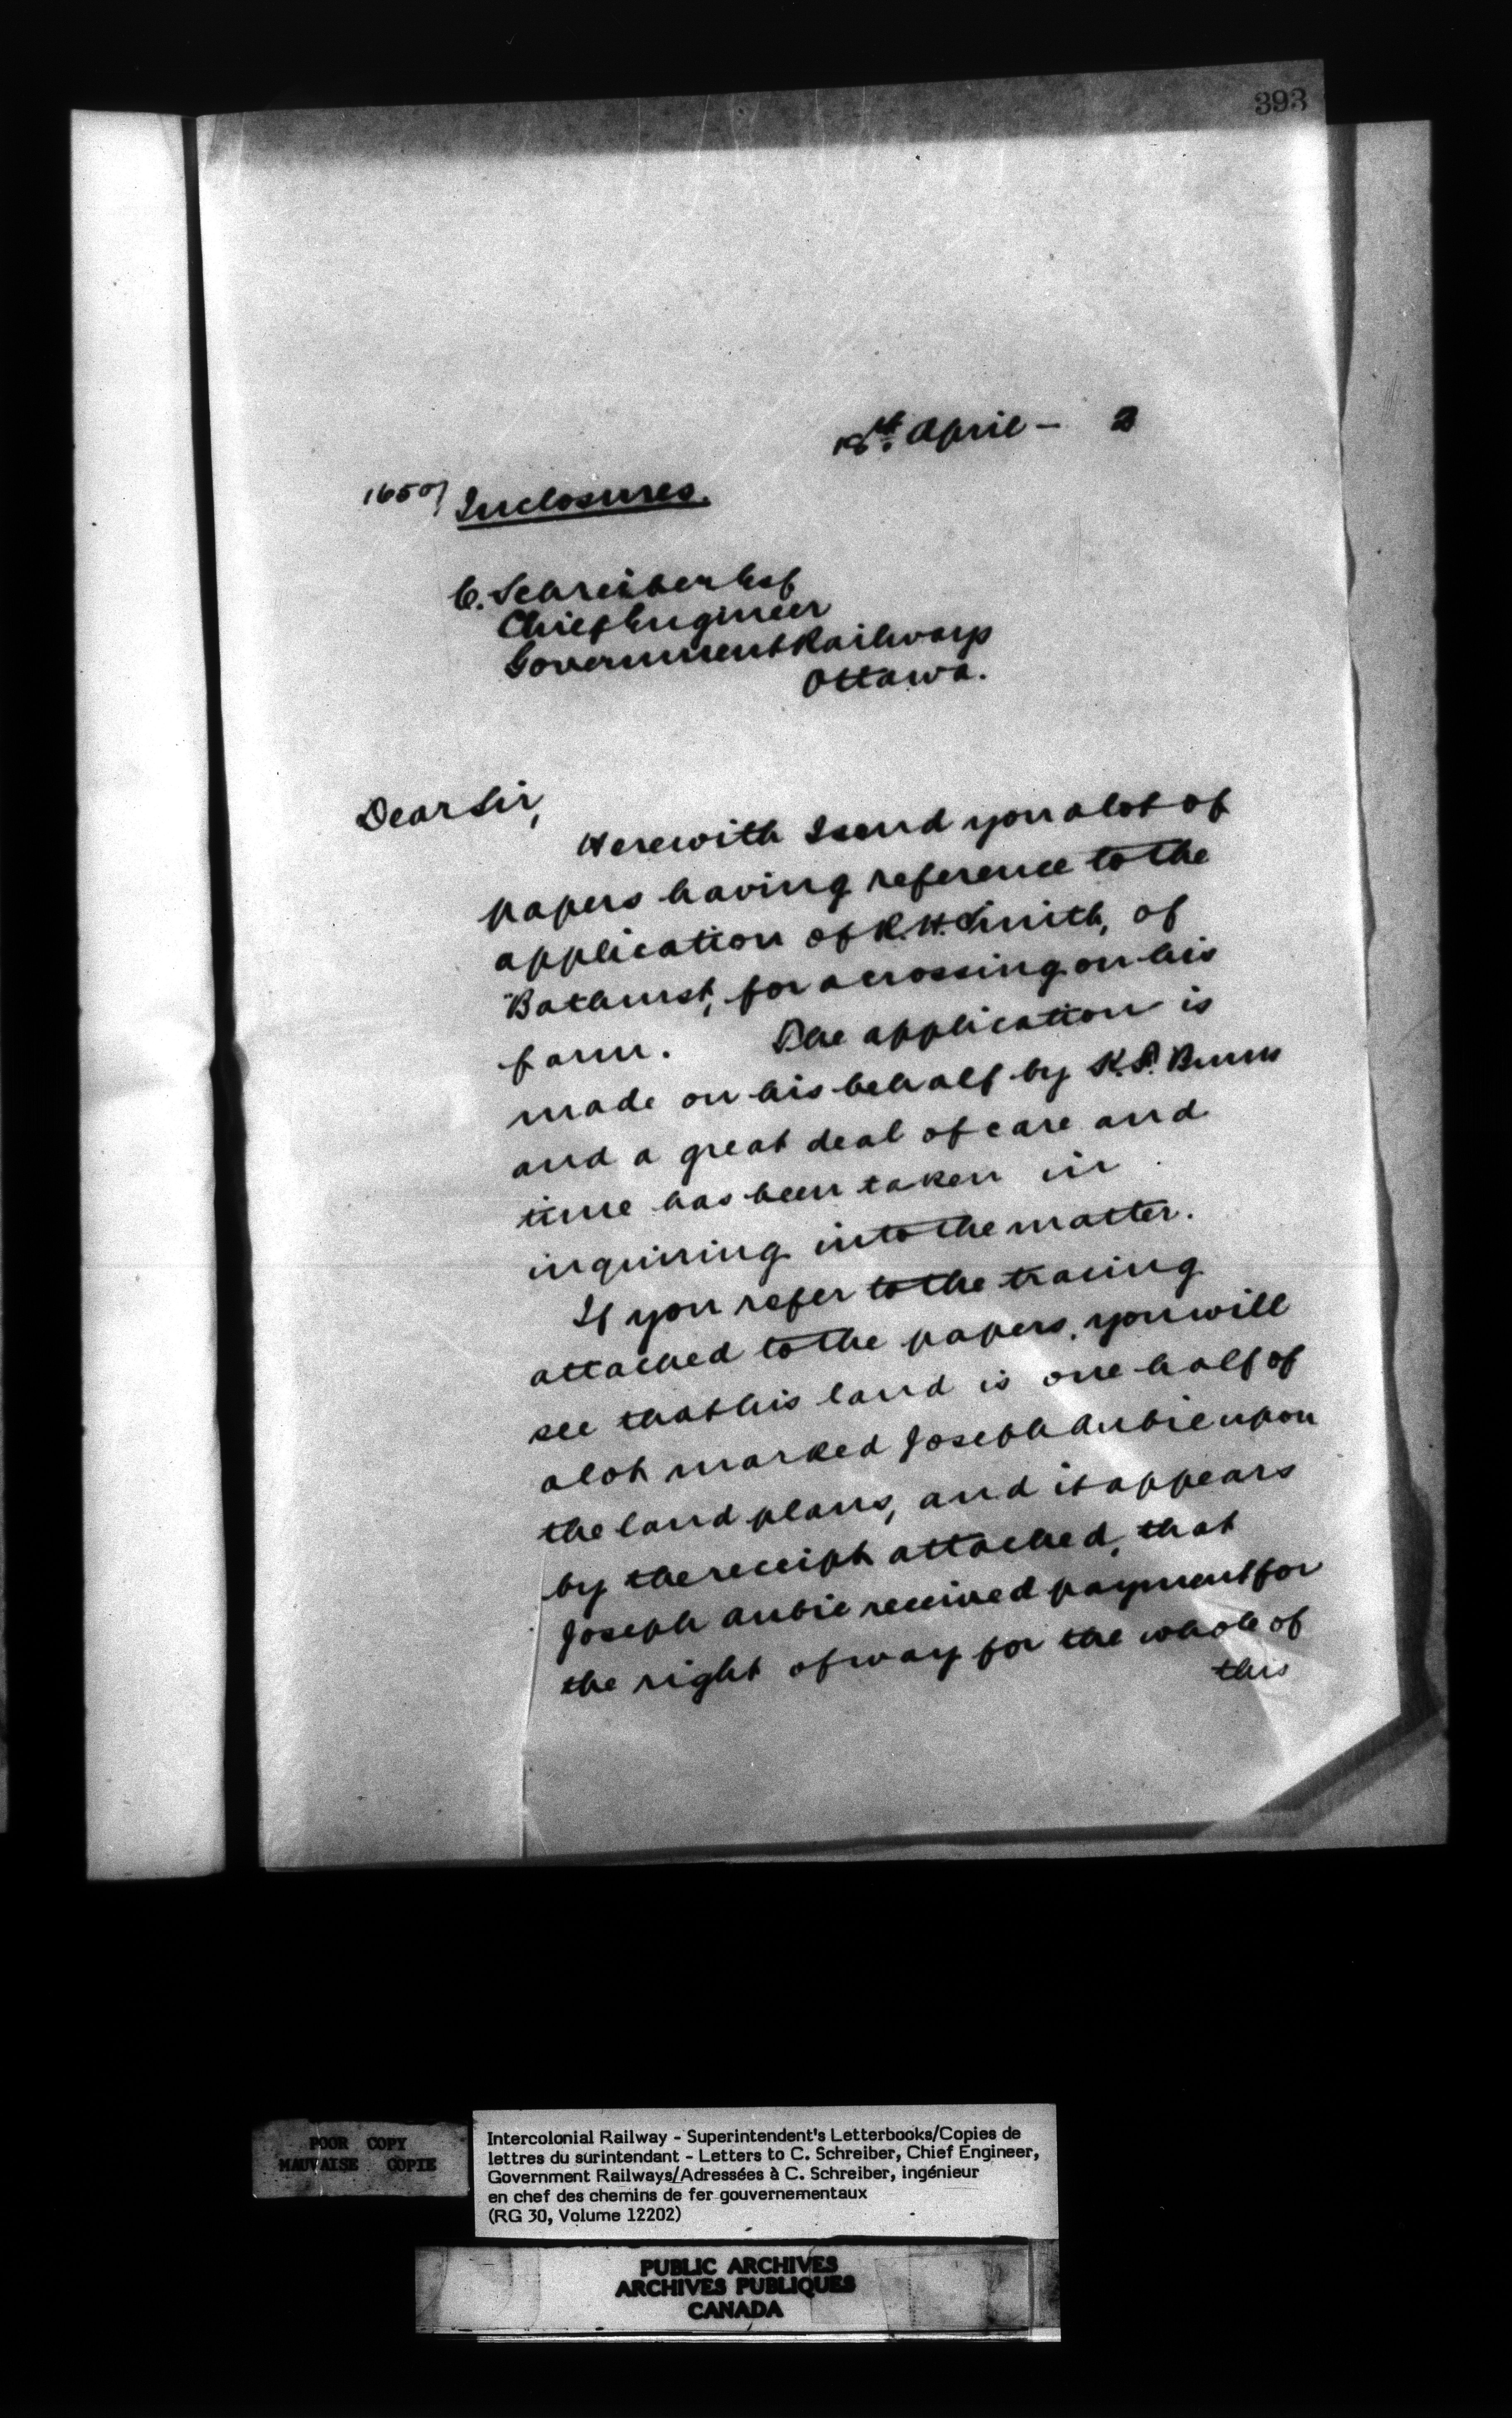 393
18th April - 3
16507 Inclosures.
C. Schreiber Esq
Chief Engineer
Government Railways
Ottawa.
Dear Sir,
Herewith I send you a lot of
papers having reference to the
application of R. H. Smith, of
Bathurst, for a crossing on his
farm. The application is
made on his behalf by K. F. Burns
and a great deal of care and
time has been taken in
inquiring into the matter.
If you refer to the tracing
attached to the papers, you will
see that his land is one half of
a lot marked Joseph Aubie upon
the land plans, and it appears
by the receipt attached, that
Joseph Aubie received payment for
the right of way for the whole of
this
POOR COPY
MAUVAISE COPIE
Intercolonial Railway - Superintendent's Letterbooks/Copies de
lettres du surintendant - Letters to C. Schreiber, Chief Engineer,
Government Railways/Adressées à C. Schreiber, ingénieur
en chef des chemins de fer gouvernementaux
(RG 30, Volume 12202)
PUBLIC ARCHIVES
ARCHIVES PUBLIQUES
CANADA